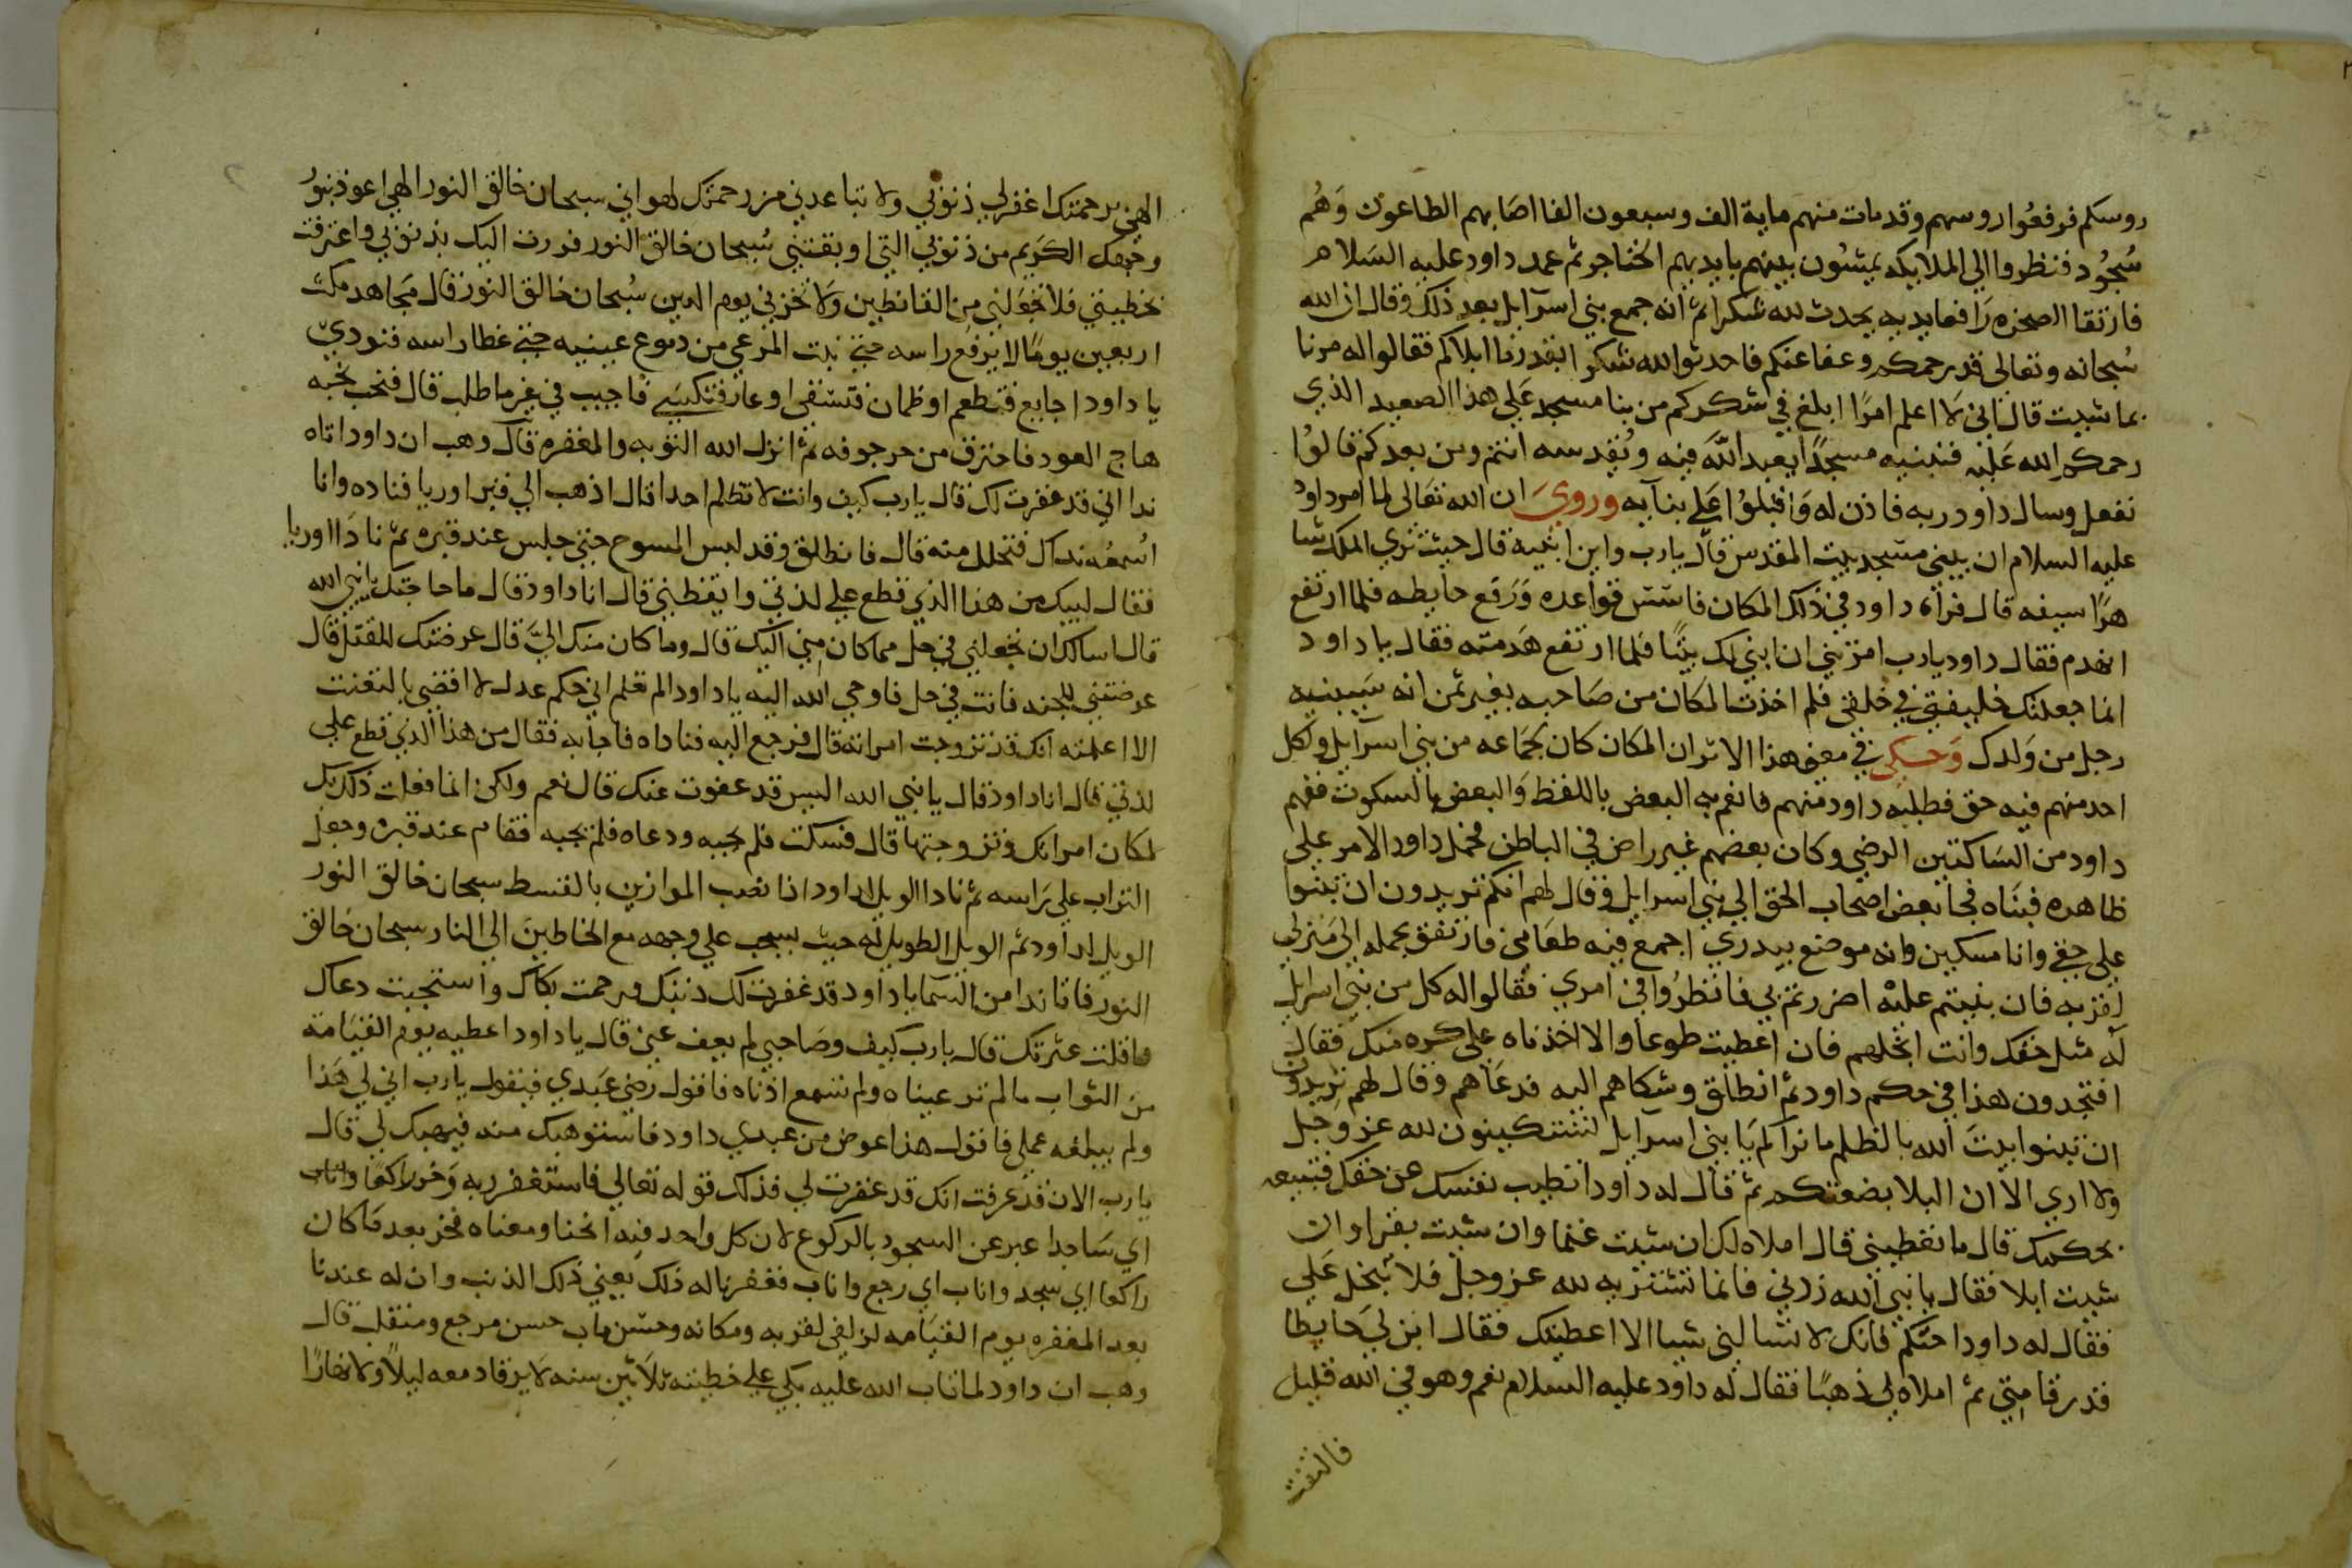 روسكم فرفعوا روسهم وقد مات منهم ماية الف وسبعون الفا اصابهم الطاعون وهم
سجود فنظروا الي الملايكه يمشون بينهم بايديهم الخناجر ثم عمد داود عليه السلام
فارتقا الصخره رافعا يديه يحدث لله شكرا ثم انه جمع بني اسرآيل بعد ذلك وقال ان الله
سبحانه وتعالى قد رحمكم وعفا عنكم فاحدثوا لله شكرا بقدر ما ابلاكم فقالوا له مرنا
بما شيت قال اني لا اعلم امرًا ابلغ في شكركم من بنا مسجد علي هذا الصعيد الذي
رحمكم الله عليه فنبنيه مسجدًا يعبد الله فيه ونقدسه انتم ومن بعدكم قالوا
نفعل وسال داود ربه فاذن له واقبلوا علي بنآيه وروي ان الله تعالى لما امر داود
عليه السلام ان يبني مسجد بيت المقدس قال يارب واين ابنيه قال حيث تري الملك شا
هرًا سيفه قال فرآه داود في ذلك المكان فاسس قواعده ورفع حايطه فلما ارتفع
انهدم فقال داود يارب امرتني ان ابني لك بيتًا فلما ارتفع هدمته فقال يا داود
انما جعلتك خليفتي في خلقي فلم اخذت المكان من صاحبه بغير ثمن انه سيبنيه
رجل من ولدك وحكي في معني هذا الاثر ان المكان كان لجماعه من بني اسرآيل ولكل
احد منهم فيه حق فطلبه داود منهم فانعم به البعض باللفظ والبعض بالسكوت ففهم
داود من الساكتين الرضي وكان بعضهم غير راض في الباطن فحمل داود الامر علي
ظاهره فبناه فجا بعض اصحاب الحق الي بني اسرايل وقال لهم انكم تريدون ان تبنوا
علي حقي وانا مسكين وانه موضع بيدري اجمع فيه طعامي فارتفق بحمله الي منزلي
لقربه فان بنيتم عليه اضررتم بي فانظروا في امري فقالوا له كل من بني اسرايل
له مثل حقك وانت ابخلهم فان اعطيت طوعا والا اخذناه علي كره منك فقال
افتجدون هذا في حكم داود ثم انطلق وشكاهم اليه فدعاهم وقال لهم تريدون
ان تبنوا بيت الله بالظلم ما نراكم يا بني اسرآيل لتستكينون لله عز وجل
ولا اري الا ان البلا بضعتكم ثم قال له داود اتطيب نفسك عن حقك فتبيعه
بحكمك قال ما تعطيني قال املاه لك ان شيت غنما وان شيت بقرا وان
شيت ابلا فقال يا نبي الله زدني فانما تشتريه لله عز وجل فلا تبخل علي
فقال له داود احتكم فانك لا تسالني شيا الا اعطيتك فقال ابن لي حايطا
قدر قامتي ثم املاه لي ذهبًا فقال له داود عليه السلام نعم وهو في الله قليل
فالتفت
الهي برحمتك اغفر لي ذنوبي ولا تباعدني من رحمتك لهواني سبحان خالق النور الهي اعوذ بنور
وجهك الكريم من ذنوبي التي اوبقتني سبحان خالق النور فررت اليك بذنوبي واعترفت
بخطيتي فلا تجعلني من القانطين ولا تخزني يوم الدين سبحان خالق النور قال مجاهد مكث
اربعين يومًا لا يرفع راسه حتي نبت المرعي من دموع عينيه حتي غطا راسه فنودي
يا داود اجايع فتطعم او ظمان فتسقي او عار فتكسي فاجيب في غير ما طلب قال فنحب نحبه
هاج العود فاحترق من حر جوفه ثم انزل الله التوبه والمغفره قال وهب ان داود اتاه
ندا اني قد غفرت لك قال يارب كيف وانت لا تظلم احدا قال اذهب الي قبر اوريا فناده وانا
اسمعه نداك فتحلل منه قال فانطلق وقد لبس المسوح حتي جلس عند قبره ثم نادا اوريا
فقال لبيك من هذا الذي قطع علي لذتي وايقظني قال انا داود قال ما حاجتك يا نبي الله
قال اسالك ان تجعلني في حل مما كان مني اليك قال وما كان منك الي قال عرضتك للقتل قال
عرضتني للجنه فانت في حل فاوحي الله اليه يا داود الم تعلم اني حكم عدل لا اقضي بالتعنت
الا اعلمته انك قد تزوجت امراته قال فرجع اليه فناداه فاجابه فقال من هذا الذي قطع علي
لذتي قال انا داود قال يا نبي الله اليس قد عفوت عنك قال نعم ولكن انما فعلت ذلك بك
لمكان امراتك وتزوجتها قال فسكت فلم يجبه ودعاه فلم يجبه فقام عند قبره وجعل
التراب علي راسه ثم نادا الويل لداود اذا نصب الموازين بالقسط سبحان خالق النور
الويل لداود ثم الويل الطويل له حيث يسحب علي وجهه مع الخاطين الي النار سبحان خالق
النور فاتاه ندا من السما يا داود قد غفرت لك ذنبك ورحمت بكاك واستجبت دعاك
واقلت عثرتك قال يارب كيف وصاحبي لم يعف عني قال يا داود اعطيه يوم القيامة
من الثواب مالم تر عيناه ولم تسمع اذناه فاقول رضي عبدي فيقول يارب اني لي هذا
ولم يبلغه عملي فاقول هذا عوض من عبدي داود فاستوهبك منه فيهبك لي قال
يارب الان قد عرفت انك قد غفرت لي فذلك قوله تعالي فاستغفر ربه وخر راكعا واناب
اي ساجدا عبر عن السجود بالركوع لان كل واحد فيه انحنا ومعناه فخر بعد ما كان
راكعا اي سجد واناب اي رجع واناب فغفرنا له ذلك يعني ذلك الذنب وان له عندنا
بعد المغفره يوم القيامه لزلفي لقربه ومكانه وحسن ماب حسن مرجع ومنقلب قال
وهب ان داود لما تاب الله عليه بكي علي خطيته ثلاثين سنه لا يرقا دمعه ليلًا ولا نهارًا